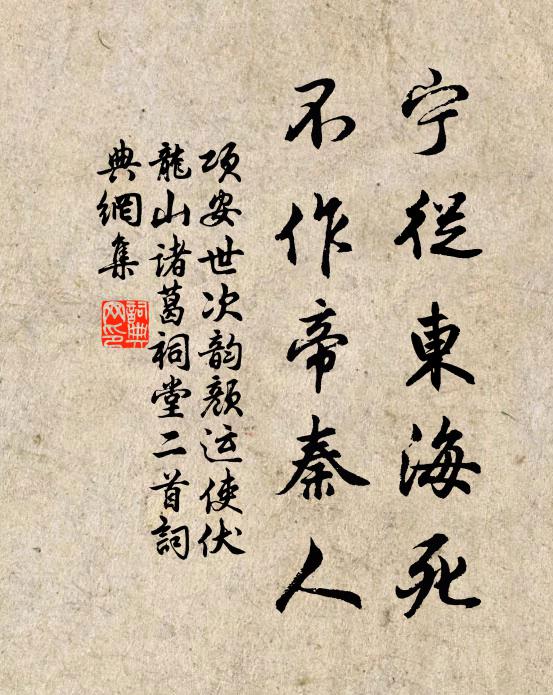 宁從東海死
不作帝秦人
项安世次韵顏运使伏
龍山諸葛祠堂二首詞
典網集
詞典
网印